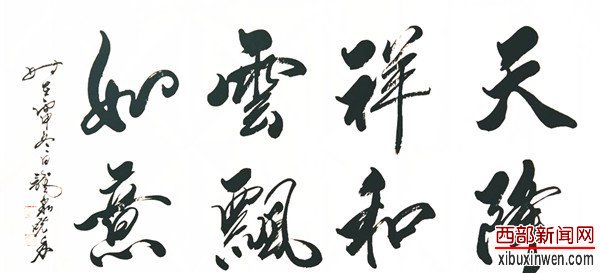 天降
祥和
雲飄
如意
冬日
西部新闻网
xibuxinwen.com